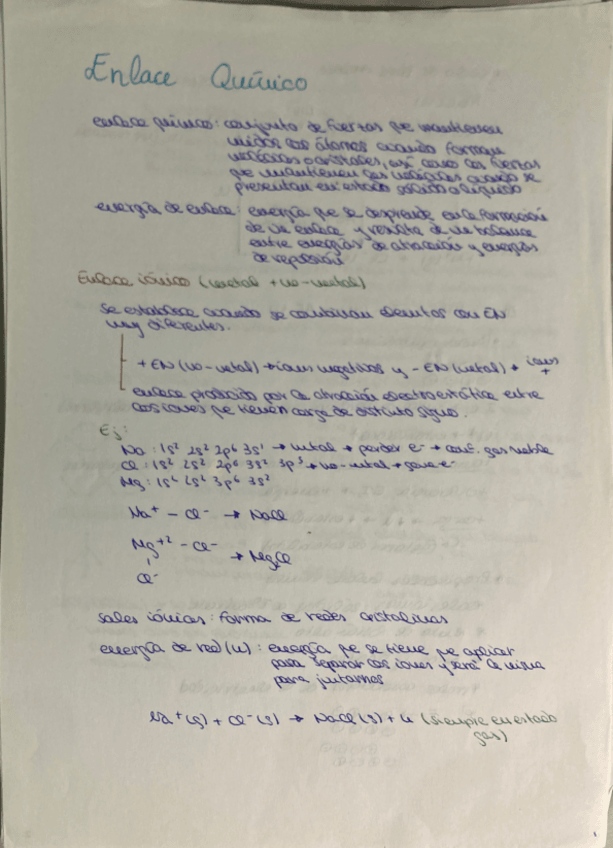 Enlace Químico
enlace químico: conjunto de fuerzas que mantienen
unidos los átomos cuando forman
moléculas o cristales, así como las fuerzas
que mantienen las moléculas cuando se
presentan en estado sólido o líquido
energía de enlace: energía que se desprende en la formación
de un enlace y resulta de un balance
entre energías de atracción y energías
de repulsión
Enlace iónico (metal + no-metal)
se establece cuando se combinan elementos con EN
muy diferentes.
+ EN (no-metal) → iones negativos y - EN (metal) → iones +
enlace producido por la atracción electrostática entre
los iones que tienen carga de distinto signo.
Ej:
Na: 1s² 2s² 2p⁶ 3s¹ → metal → perder e⁻ → conf. gas noble
Cl: 1s² 2s² 2p⁶ 3s² 3p⁵ → no-metal → gana e⁻
Mg: 1s² 2s² 3p⁶ 3s²
Na⁺ – Cl⁻ → NaCl
Mg⁺² – Cl⁻ → MgCl
Cl⁻
sales iónicas: forma de redes cristalinas
energía de red (u): energía que se tiene que aplicar
para separar los iones y será la misma
para juntarnos
Na⁺(g) + Cl⁻(g) → NaCl(s) + u (siempre en estado
gas)